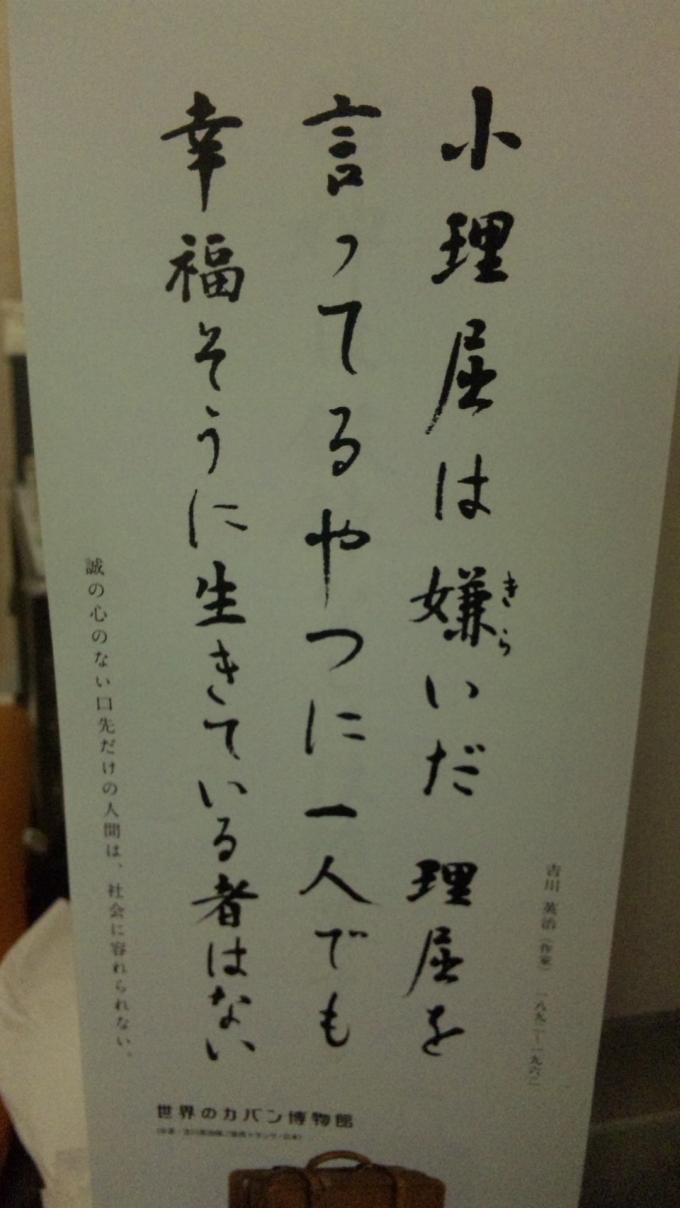 小理屈は嫌いだ 理屈を
きら
言ってるやつに一人でも
幸福そうに生きている者はない
吉川 英治(作家) 一八九二―一九六二
誠の心のない口先だけの人間は、社会に容れられない。
世界のカバン博物館